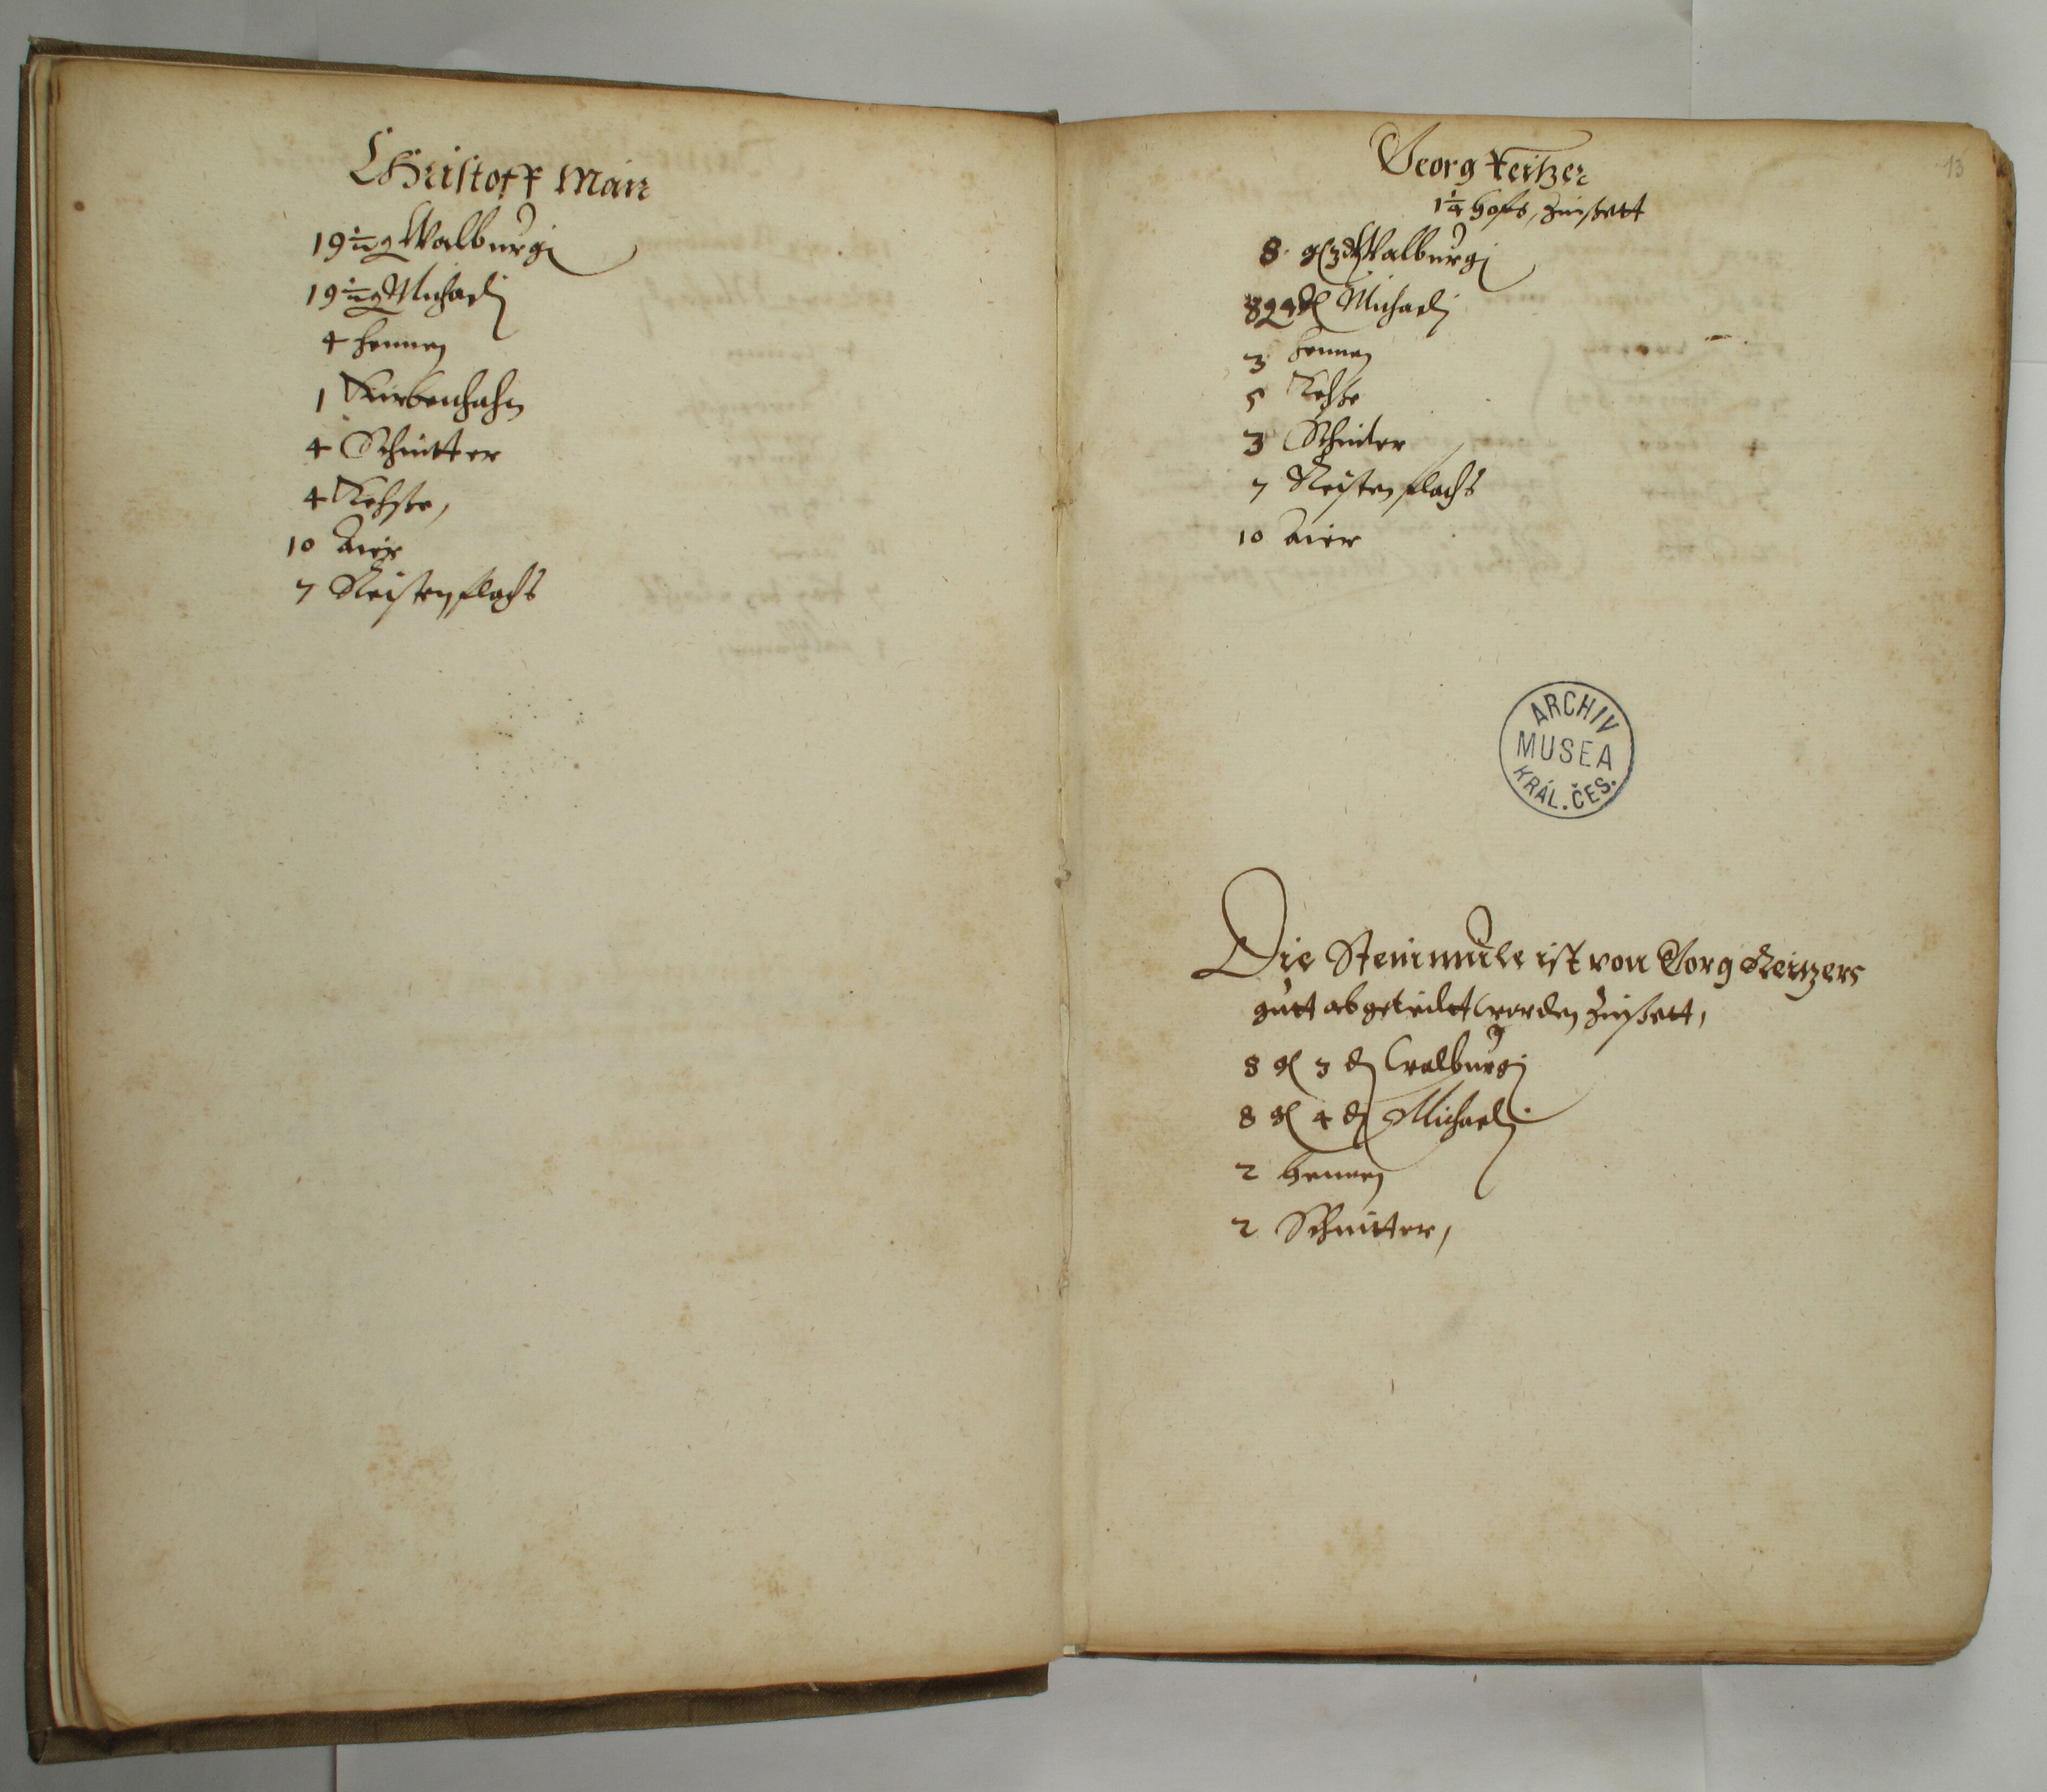 Christoff Mair
19 1/2 g Walburgi
19 1/2 g Michaeli
4 hennen
1 Kirbenhahn
4 Schnitter
4 Kehße,
10 Aier
7 Reisten flachs
13
Georg Reitzer
1 1/4 hofs, Zinßett
8 gl 3 d Walburgi
8 g 4 d Michaeli
3 hennen
5 Kehße
3 Schniter
7 Reisten flachs
10 Aier
ARCHIV
MUSEA
KRÁL. ČES.
Die Steinmüle ist von Görg Reitzers
gutt abgeteilt worden Zinßett,
8 gl 3 d Walburgi
8 gl 4 d Michaeli
2 hennen
2 Schnitter,